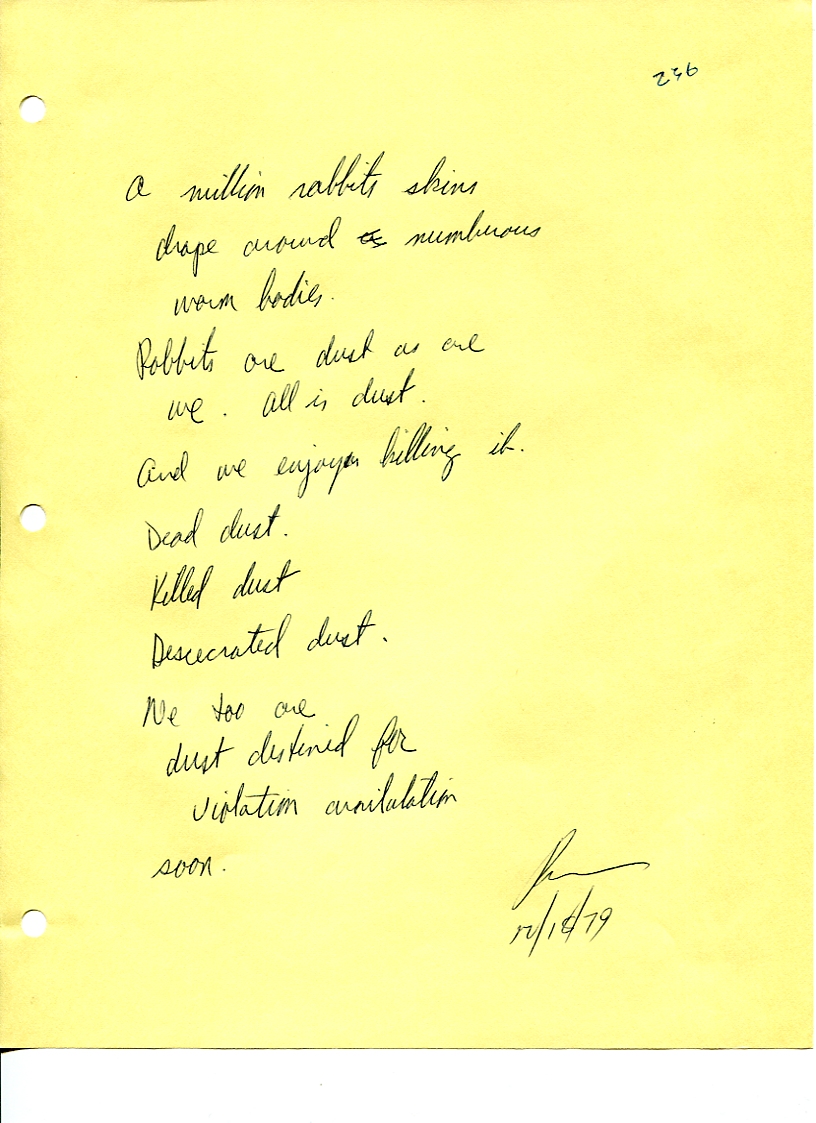 236
A million rabbits skins
drape around numburous
warm bodies.
Rabbits are dust as are
we. All is dust.
And we enjoy killing it.
Dead dust.
Killed dust
Descecrated dust.
We too are
dust destined for
violation annilalation
soon.
12/18/79